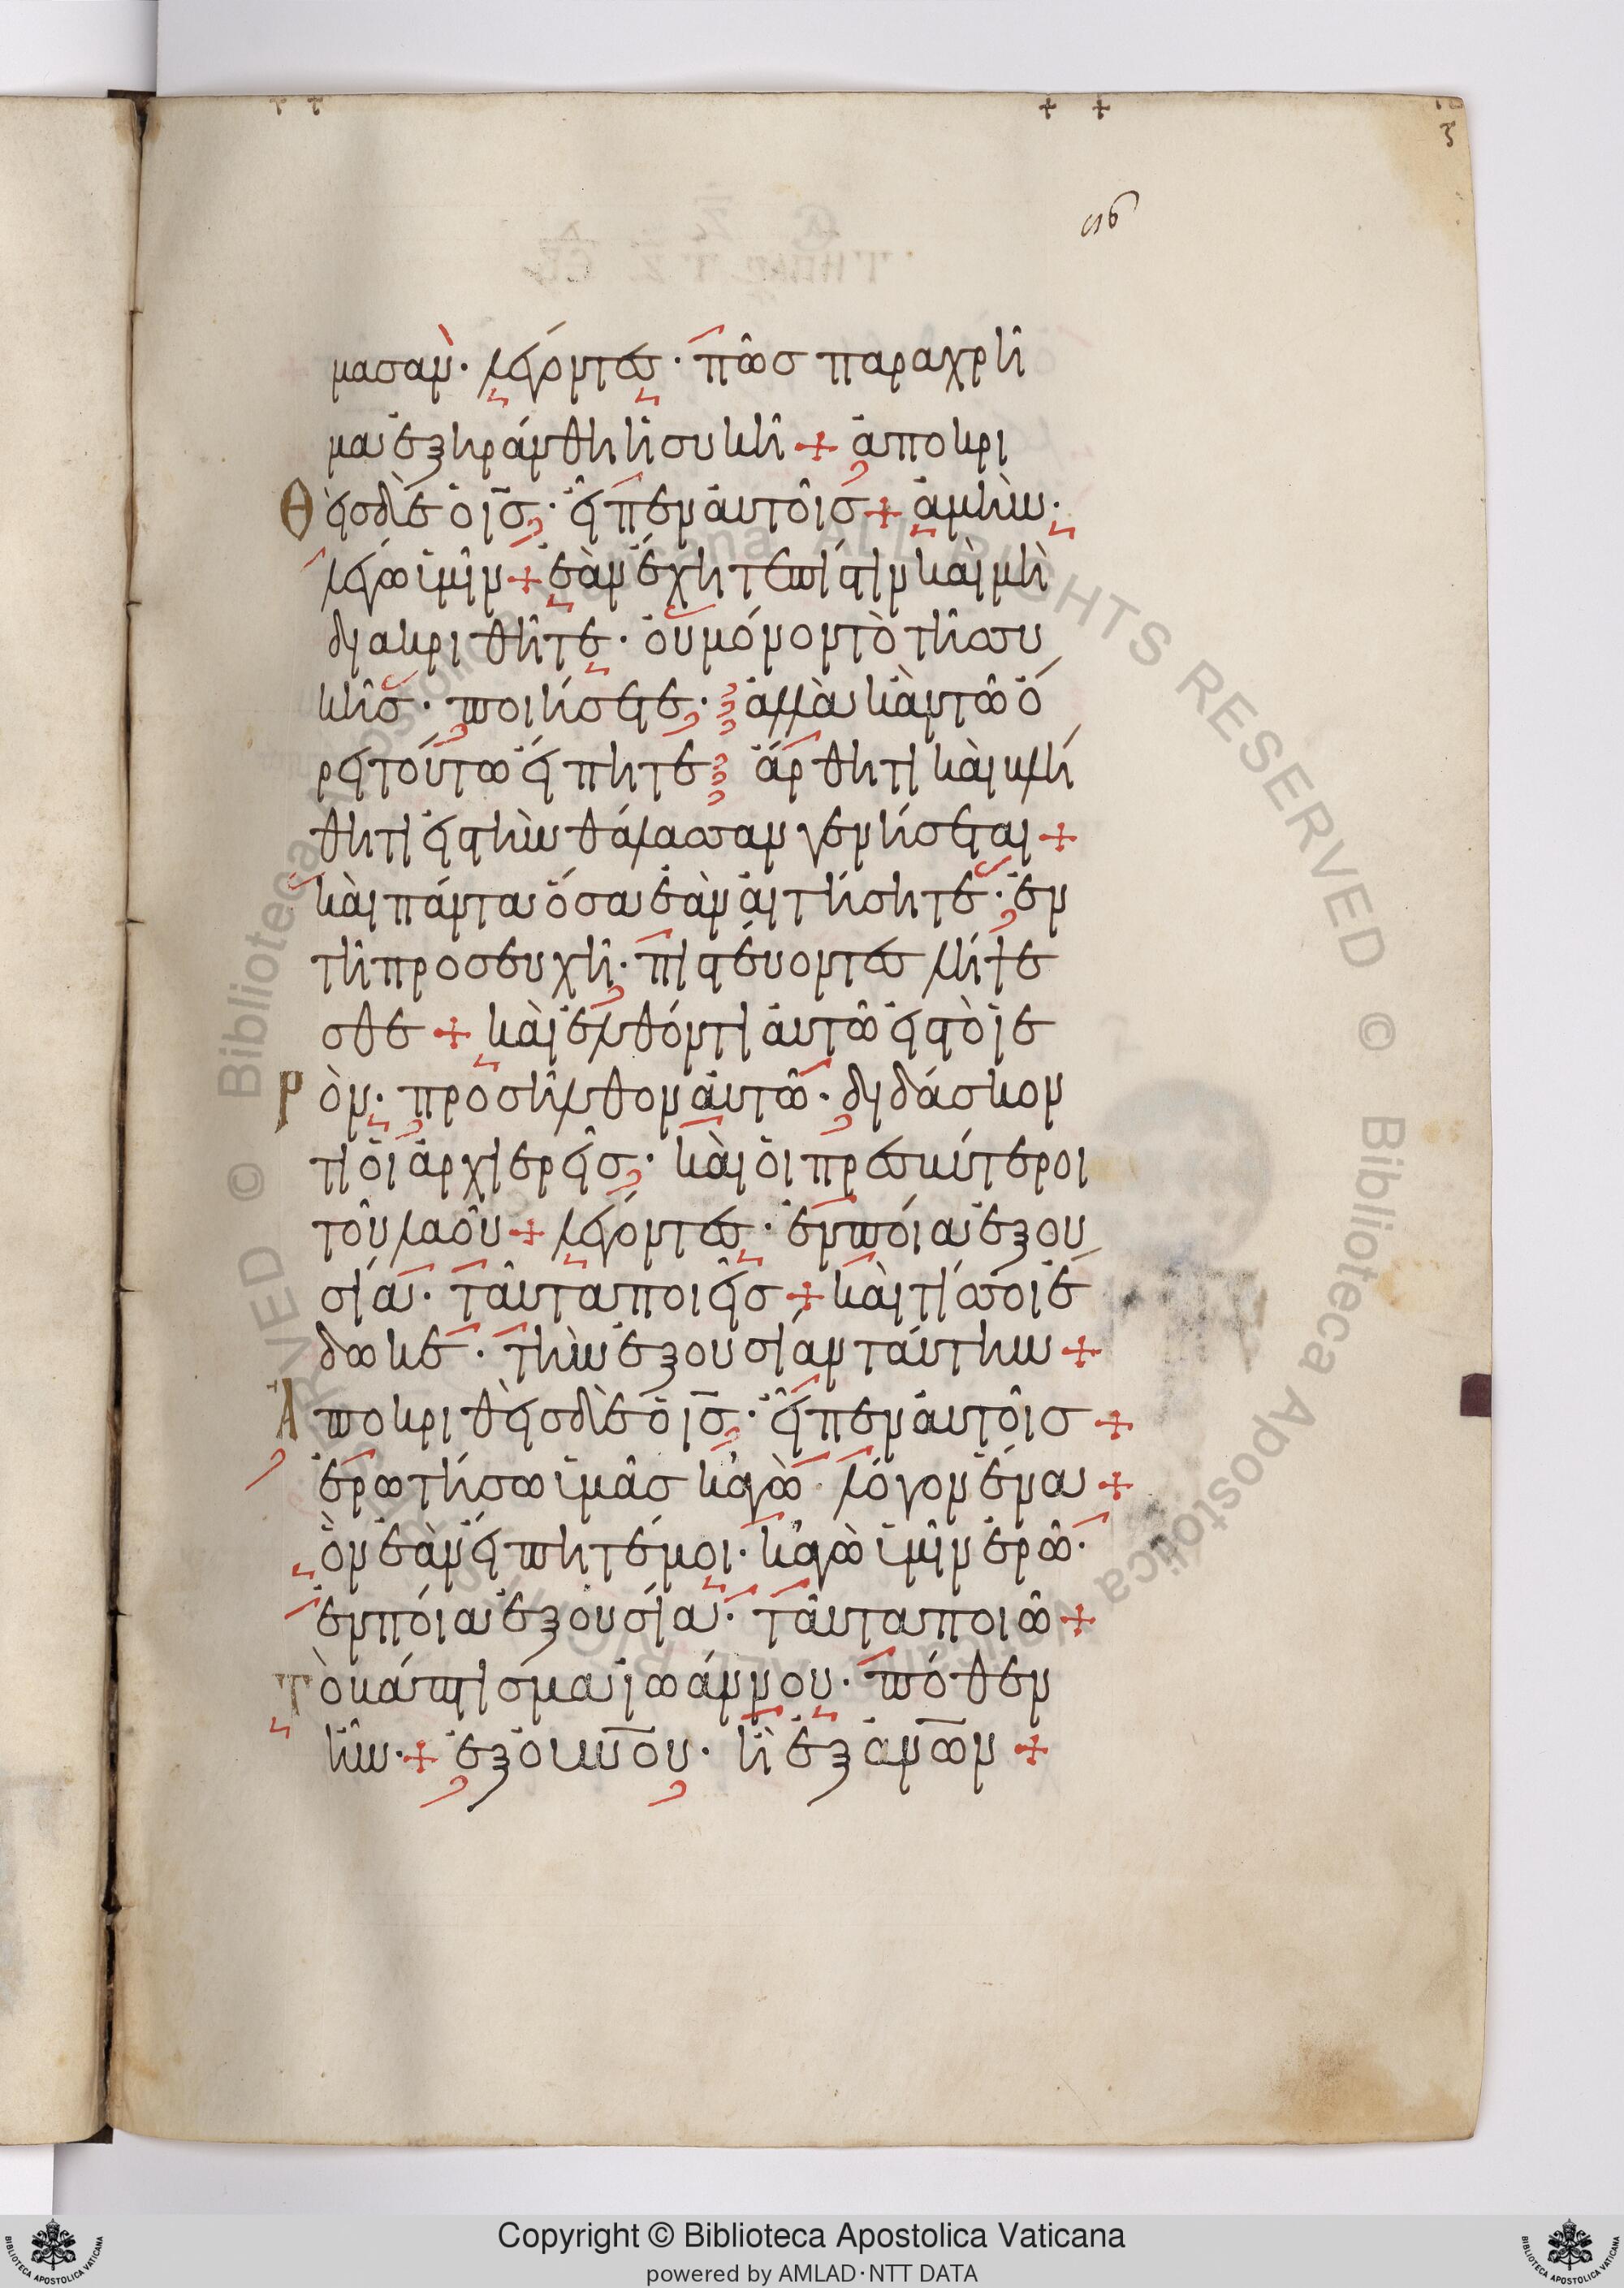 μασαν· λέγοντες· πῶς παραχρῆ
μα ἐξηράνθη ἡ συκῆ + ἀποκρι
Θεὶς δὲ ὁ ι̅ς̅· εἶπεν αὐτοῖς + ἀμὴν·
λέγω ὑμῖν + ἐὰν ἔχητε πίστιν καὶ μὴ
διακριθῆτε· οὐ μόνον τὸ τῆς συ
κῆς· ποιήσετε· ἀλλὰ κὰν τῶ ὄ
ρει τούτω εἴπητε ἄρθητι καὶ βλή
θητι εἰς τὴν θάλασσαν γενήσεται +
καὶ πάντα ὅσα ἐὰν αἰτήσητε· ἐν
τῆ προσευχῆ· πιστεύοντες λήψε
σθε + καὶ ἐλθόντι αὐτῶ εἰς τὸ ἱε
Ρὸν· προσῆλθον αὐτῶ· διδάσκον
τι οἱ ἀρχιερεῖς· καὶ οἱ πρεσβύτεροι
τοῦ λαοῦ + λέγοντες· ἐν ποία ἐξου
σία· ταῦτα ποιεῖς + καὶ τίς σοι ἔ
δωκε· τὴν ἐξουσίαν ταύτην +
Ἀποκριθεὶς δὲ ὁ ι̅ς̅· εἶπεν αὐτοῖς +
ἐρωτήσω ὑμᾶς κἀγὼ λόγον ἕνα +
ὃν ἐὰν εἴπητέ μοι· κἀγὼ ὑμῖν ἐρῶ·
ἐν ποία ἐξουσία· ταῦτα ποιῶ +
Τὸ βάπτισμα ἰωάννου· πόθεν
ἦν· + ἐξ οὐν̅ου· ἢ ἐξ ἀν̅ω̅ν +
Copyright © Biblioteca Apostolica Vaticana
powered by AMLAD·NTT DATA